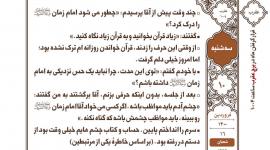 چند وقت پیش از آقا پرسیدیم: «چطور می شود امام زمان
را درک کرد؟»
گفتند: «زیاد قرآن بخوانید و به قرآن زیاد نگاه کنید.»
از وقتی این حرف را زدند، قرآن خواندن روزانه ام ترک نشده بود؛
اما امروز خیلی دلم گرفت.
با خودم گفتم: «توی این مدت، چرا نباید یک حس نزدیکی به امام
زمان داشته باشم؟»
بعد از جلسه، بدون اینکه حرفی بزنم، آقا برگشتند به من گفتند:
«چشم آدم باید مواظب باشد. اگر کسی می خواد آقا امام زمان
رو ببینه، باید مواظب چشمش باشه که گناه نکنه.»
سرم را انداختم پایین. حساب و کتاب چشم هایم خیلی وقت بود از
دستم در رفته بود. (بر اساس خاطره یکی از مرتبطین)
سه شنبه
۱۰
فروردین
۱۴۰۰
۱۶
شعبان